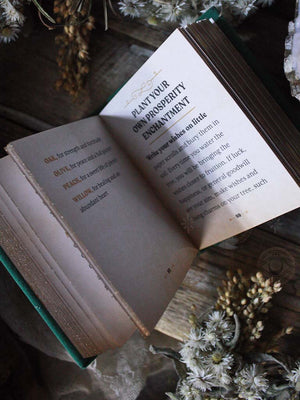 OAK, for strength and fortitude
OLIVE, for peace and
PEACH, for a sweet life of
WILLOW, for healing and an
abundant heart
PLANT YOUR
OWN PROSPERITY
ENCHANTMENT
Write your wishes on little
paper scrolls and bury them in
soil. Every time you water the
you will be bringing the
wishes closer to fruition. If luck,
happiness, or general goodwill
are your aim, make wishes and
hang charms on your tree, such